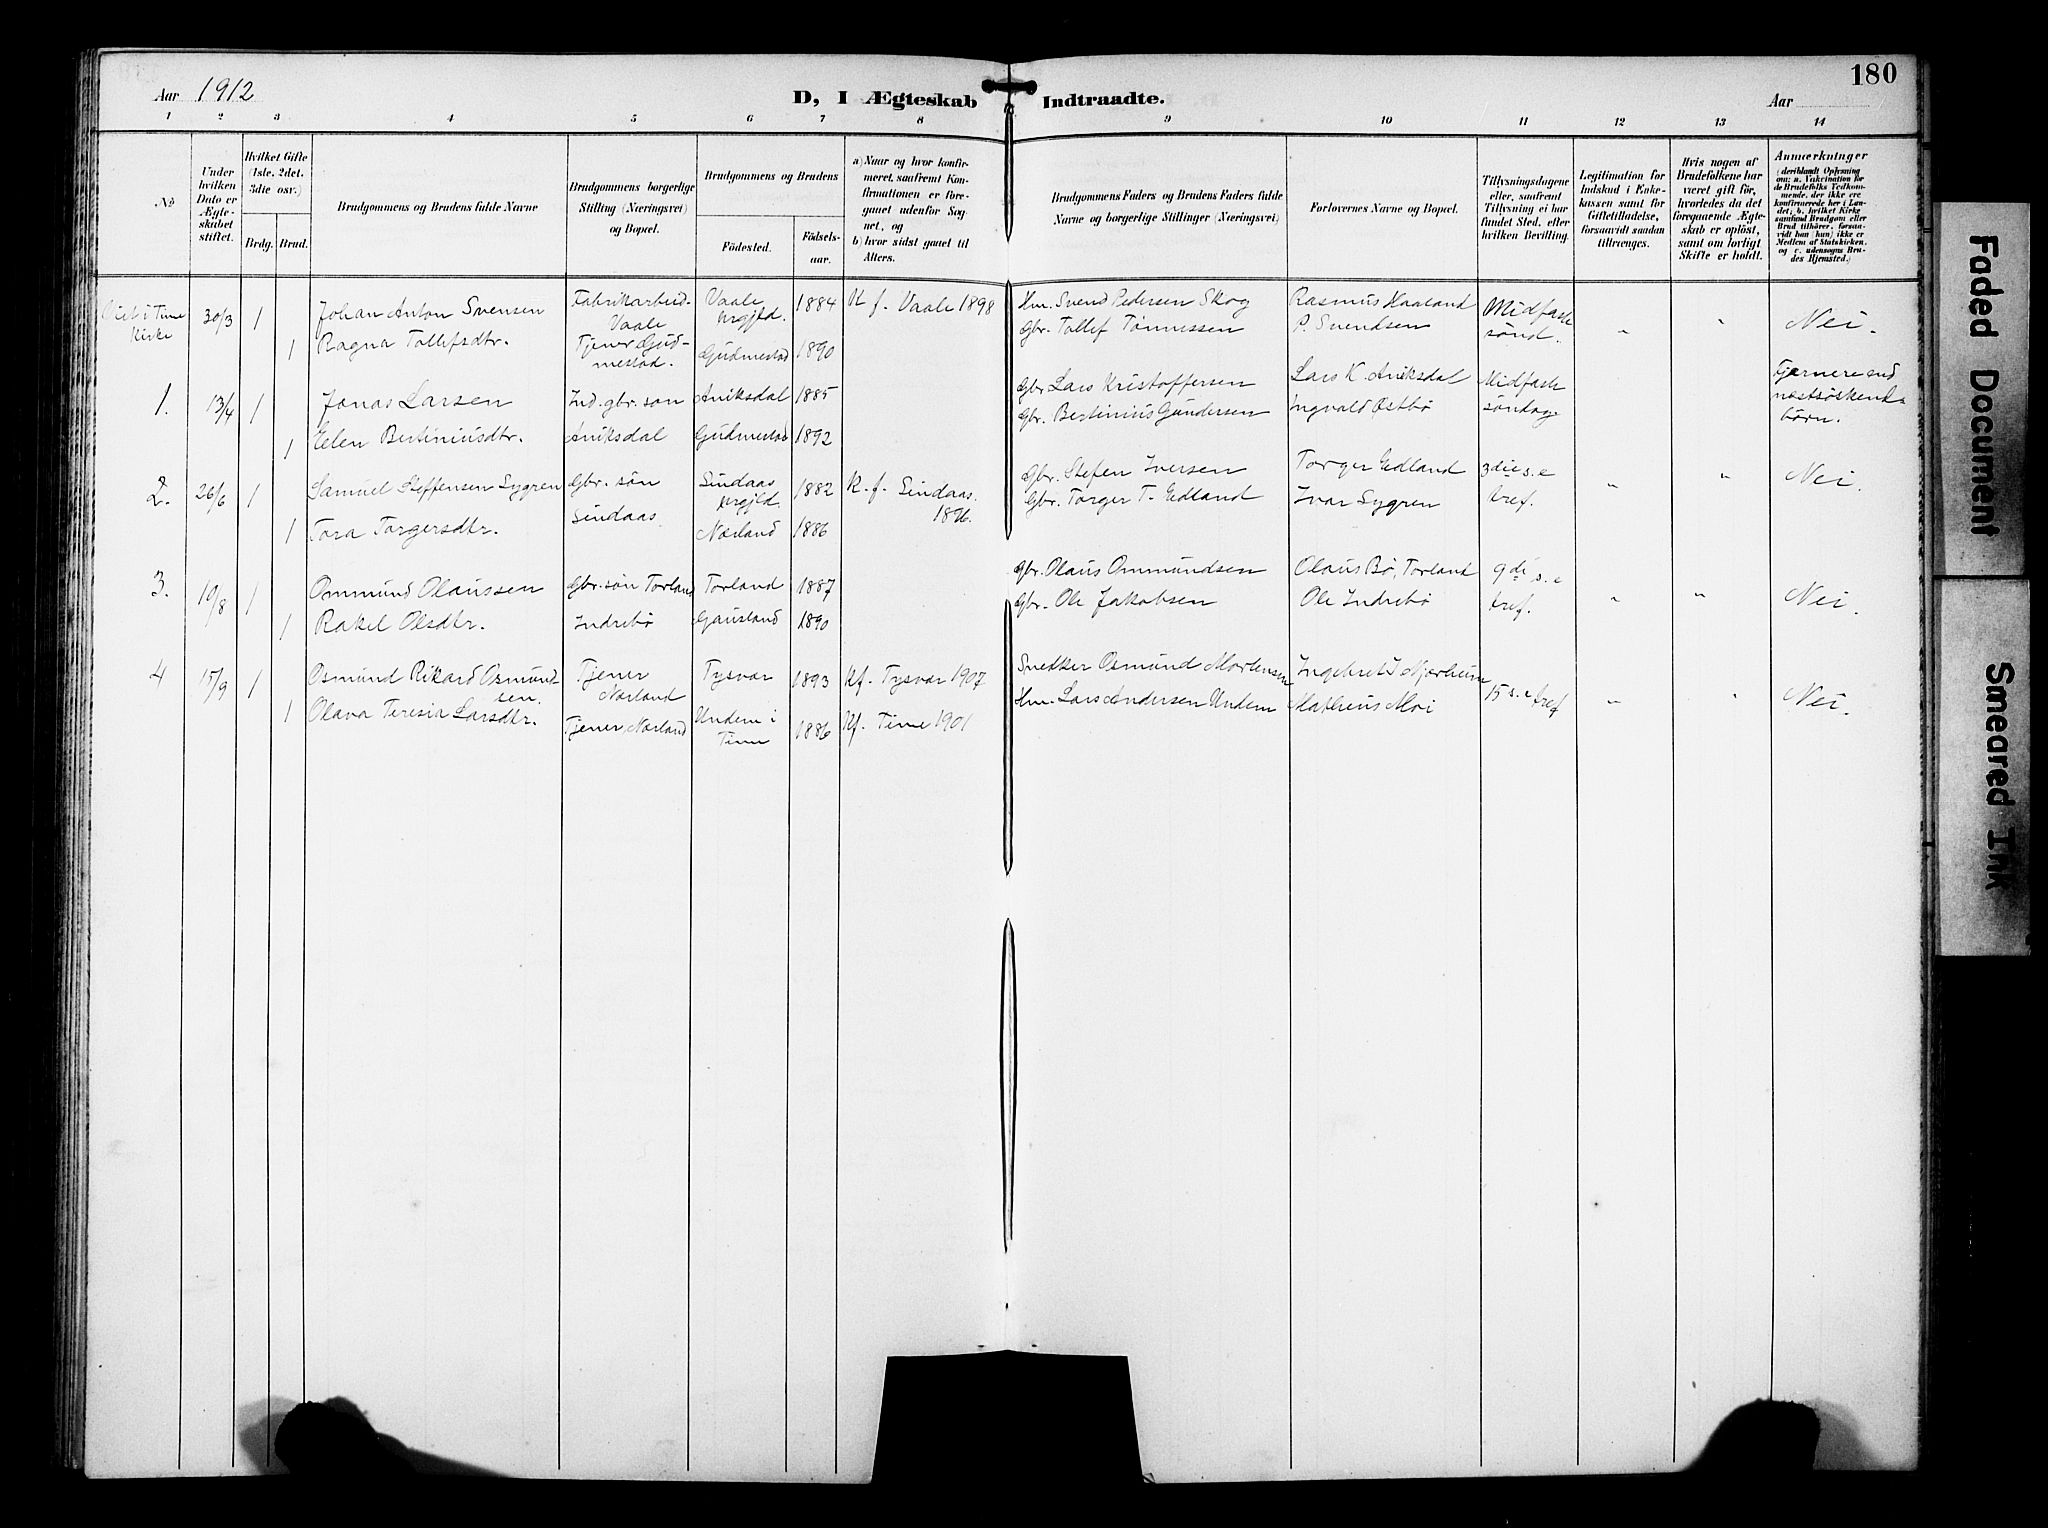 Aar 1912
D, I Ægteskab Indtraadte.
Aar
180
1 2 3 4 5 6 7 8 9 10 11 12 13 14
No
Under hvilken Dato er Ægteskabet stiftet.
Hvilket Gifte (1ste, 2det, 3die osv.)
Brdg. Brud.
Brudgommens og Brudens fulde Navne
Brudgommens borgerlige Stilling (Næringsvei) og Bopæl.
Brudgommens og Brudens
Fødested.
Fødselsaar.
a) Naar og hvor konfirmeret, saafremt Konfirmationen er foregaaet udenfor Sognet, og
b) hvor sidst gaaet til Alters.
Brudgommens Faders og Brudens Faders fulde Navne og borgerlige Stillinger (Næringsvei)
Forlovernes Navne og Bopæl.
Tillysningsdagene eller, saafremt Tillysning ei har fundet Sted, efter hvilken Bevilling.
Legitimation for Indskud i Enkekassen samt for Giftetilladelse, forsaavidt saadan tiltrænges.
Hvis nogen af Brudefolkene har været gift før, hvorledes da det foregaaende Ægteskab er opløst, samt om lovligt Skifte er holdt.
Anmærkninger
(deriblandt Oplysning om: a. Vakcination for de Brudefolks Vedkommende, der ikke ere konfirmerede her i Landet; b. hvilket Kirkesamfund Brudgom eller Brud tilhører, forsaavidt han (hun) ikke er Medlem af Statskirken, og c. udensogns Brudes Hjemsted.)
Viet i Time Kirke 30/3 1 Johan Anton Svensen Fabrikarbeid. Vaale Vaale prgjld. 1884 K f. Vaale 1898 Hm. Svend Pedersen Skog Rasmus Haaland Midfaste sönd. " " Nei.
1 Ragna Tollefsdtr. Tjener Gudmestad. Gudmestad 1890 Gbr. Tollef Tønnessen P. Svendsen
1. 13/4 1 Jonas Larsen Ind. gbr. søn Aniksdal 1885 Gbr. Lars Kristoffersen Lars K. Aniksdal Midfaste söndag Fjernere end næstsøskendebørn.
1 Elen Bertiniusdtr. Aniksdal Gudmestad 1892 Gbr. Bertinius Gundersen Ingvald Østbø
2. 26/6 1 Samuel Steffensen Sygren Gbr. søn Sindaas prgjld. 1882 K. f. Sindaas. 1896. Gbr. Stefen Iversen Torger Edland 3die s. e tref. " " Nei.
1 Tora Torgersdtr. Sindaas. Nærland 1886 Gbr. Torger T. Edland Ivar Sygren
3. 10/8 1 Ommund Olaussen Gbr. søn Torland Torland 1887 Gbr. Olaus Ommundsen Olaus Bø, Torland 9di s. e tref. " " Nei.
1 Rakel Olsdtr. Indrebø Gausland 1890 Gbr. Ole Jakobsen Ole Indrebø
4 15/9 1 Osmund Rikard Osmundsen. Tjener Nærland Tysvær 1893 Kf. Tysvær 1907 Snedker Osmund Mortensen Ingebret I Njærheim 15 s. e tref " " Nei.
1 Olava Teresia Larsdtr. Tjener Nærland Undem i Time 1886 Kf. Time 1901 Hm. Lars Andersen Undem Matheus Moi
Faded Document
Smeared Ink